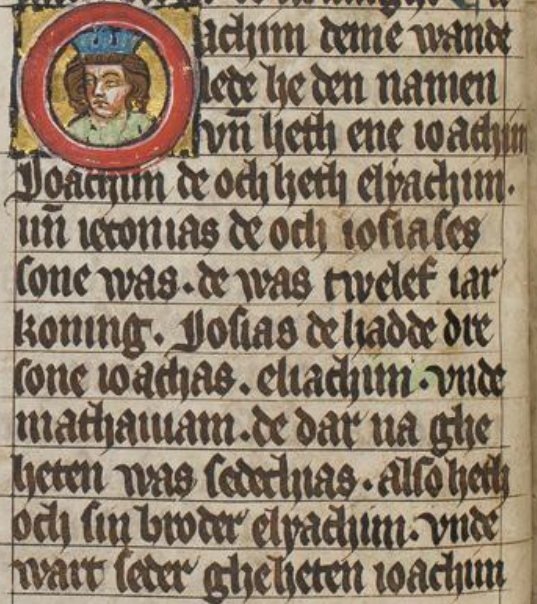 achim deme wande
lede he den namen
vn̄ heth ene ioachim
Joachim de och heth elyachim.
un̄ ieconias de och iosiases
sone was. de was twelef iar
koning. Josias de hadde dre
sone ioachas. eliachim. vnde
mathaniam. de dar na ghe
heten was sedechias. also heth
och sin broder elyachim. vnde
wart seder gheheten ioachim